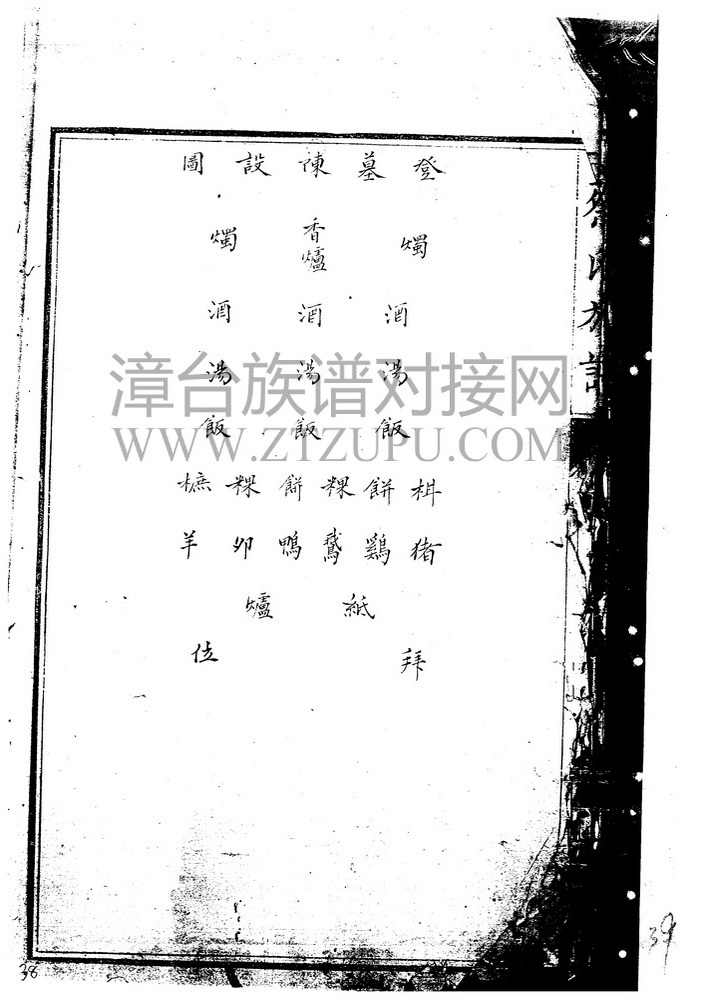 登墓陳設圖
燭 香爐 燭
酒 酒 酒
湯 湯 湯
飯 飯 飯
柑 餅 粿 餅 粿 樜
猪 鷄 鵞 鴨 卯 羊
紙爐
拜位
蔡氏族譜
漳台族谱对接网
WWW.ZTZUPU.COM
38
39